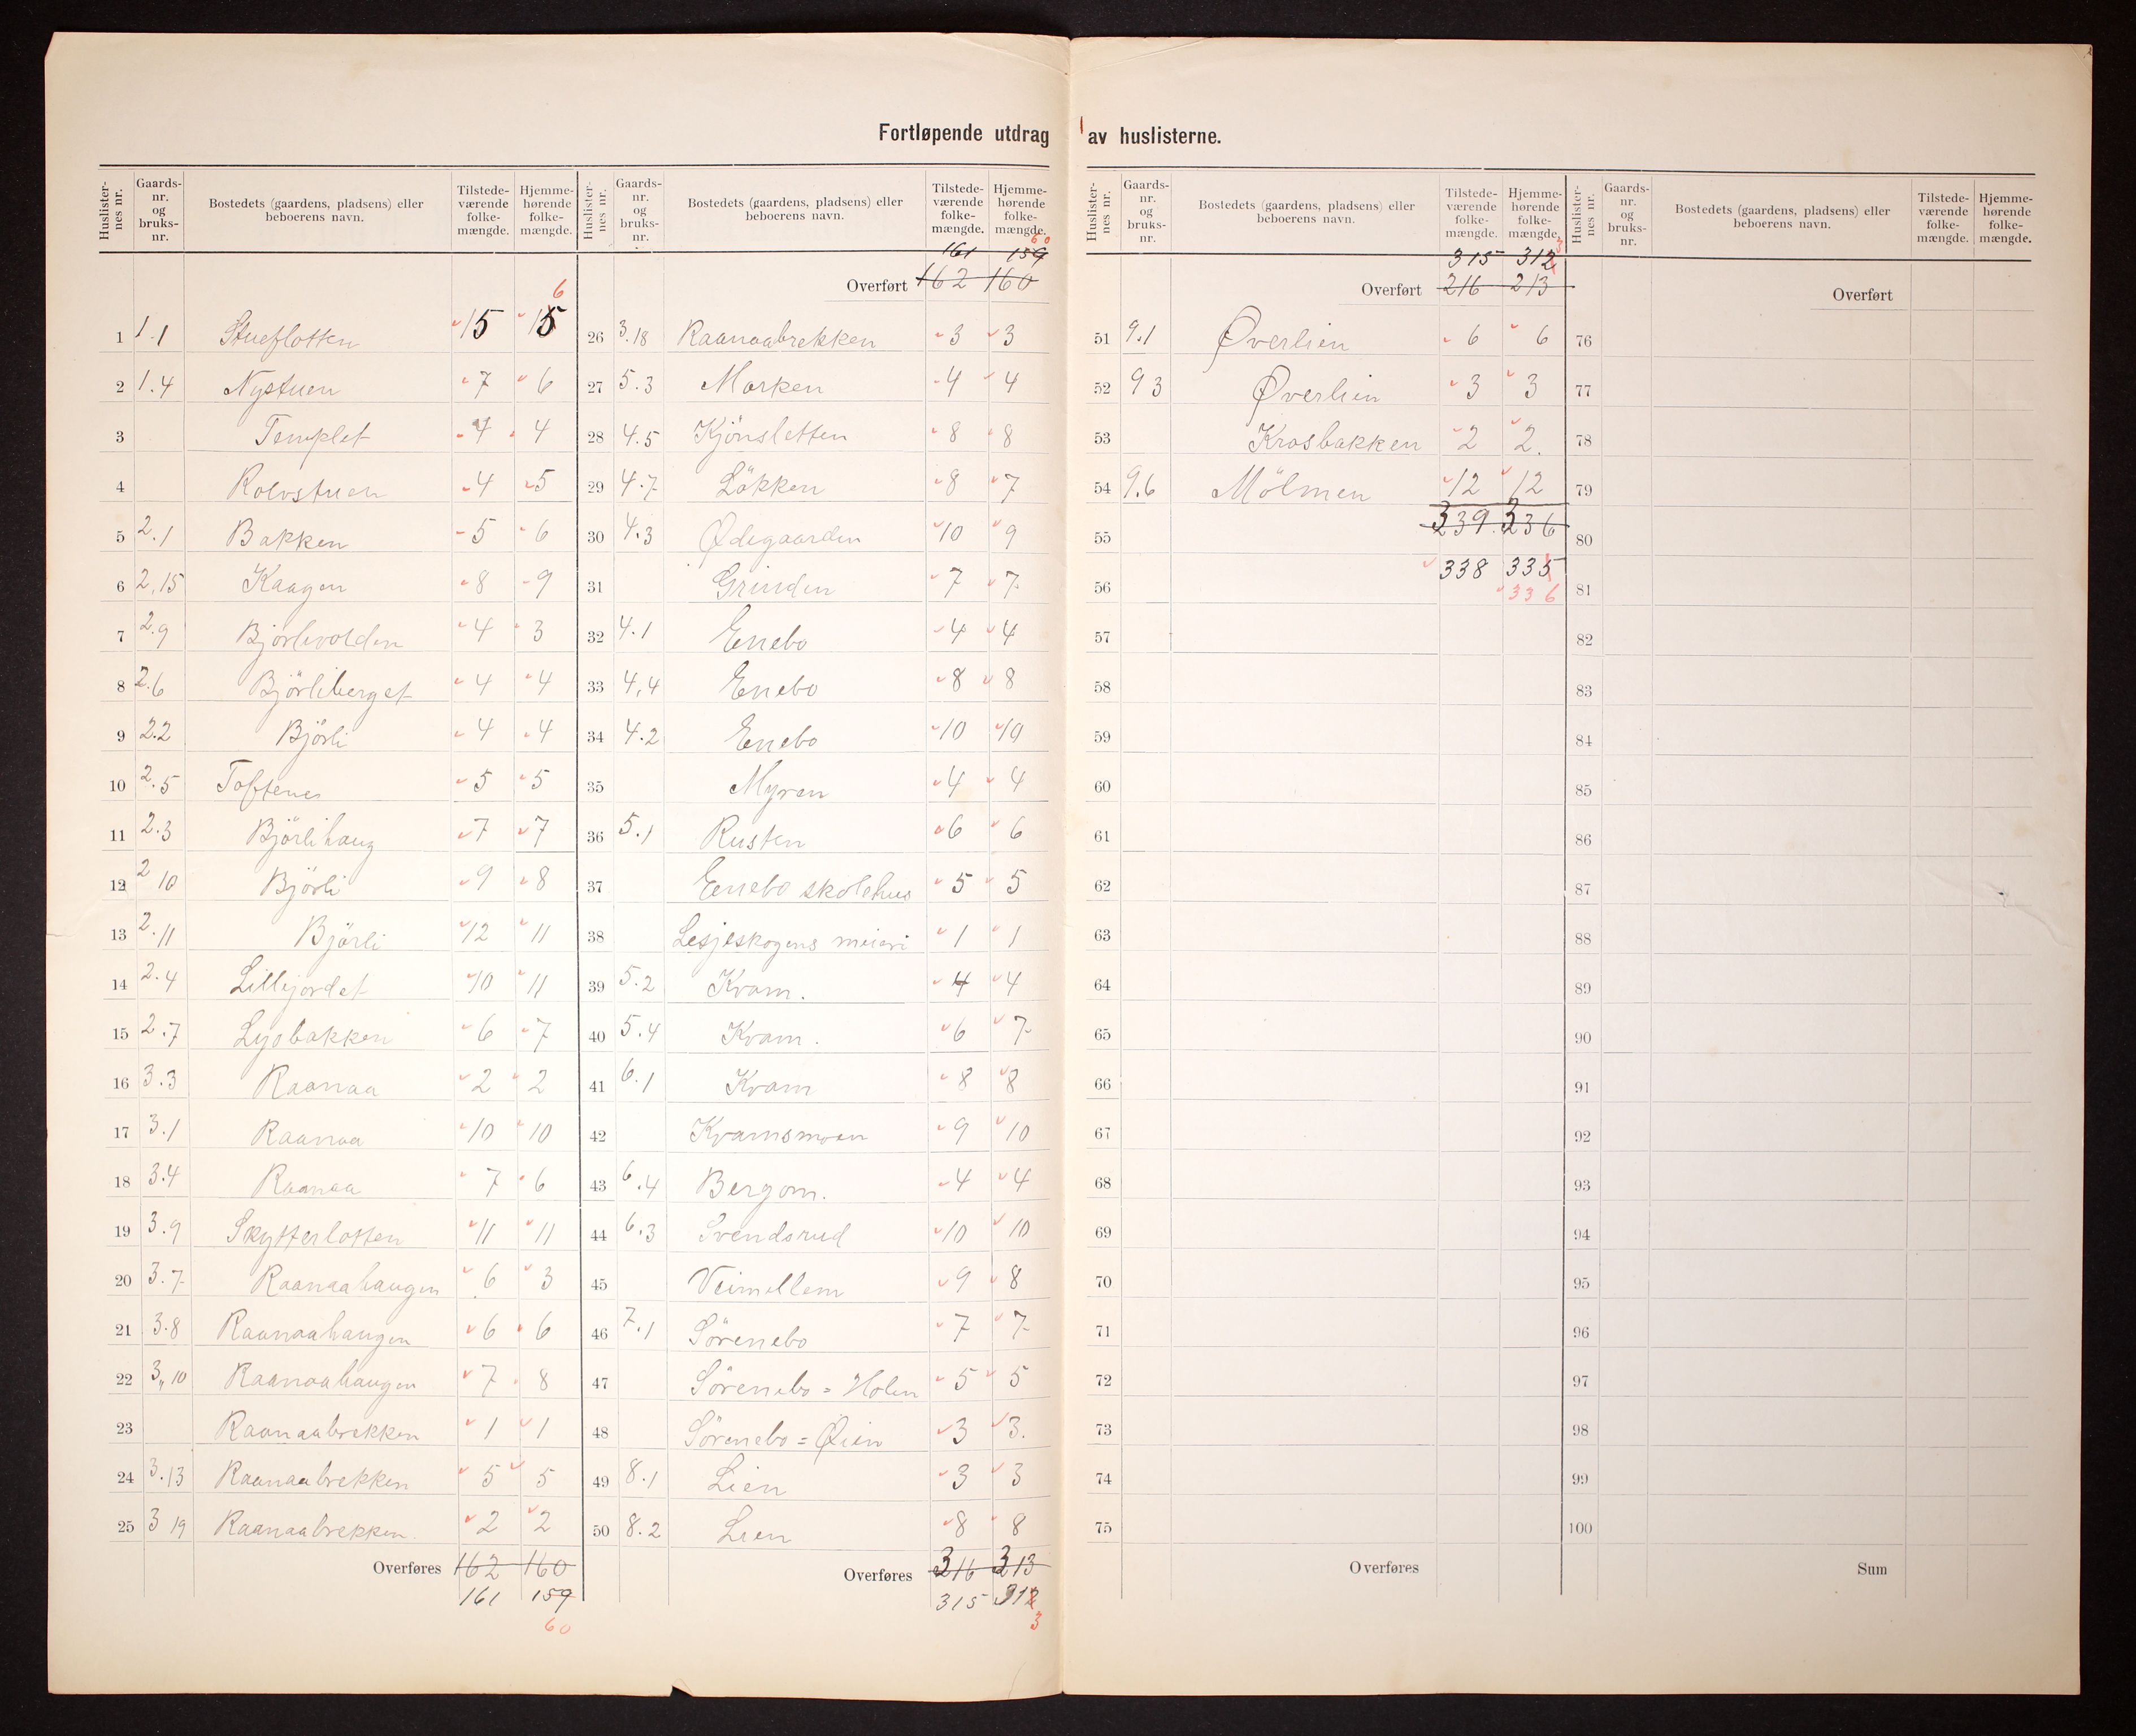 Fortløpende utdrag av huslisterne.
Huslisternes nr. Gaards-nr. og bruks-nr. Bostedets (gaardens, pladsens) eller beboerens navn. Tilstede-værende folke-mængde. Hjemme-hørende folke-mængde.
6
1 1.1 Stueflotten 15 15
2 1.4 Nystuen 7 6
3 Templet 4 4
4 Rolvstuen 4 5
5 2.1 Bakken 5 6
6 2.15 Kaagen 8 9
7 2.9 Bjørlivolden 4 3
8 2.6 Bjørliberget 4 4
9 2.2 Bjørli 4 4
10 2.5 Toftenes 5 5
11 2.3 Bjørlihaug 7 7
12 2 10 Bjørli 9 8
13 2.11 Bjørli 12 11
14 2.4 Lillejordet 10 11
15 2.7 Lysbakken 6 7
16 3.3 Raanaa 2 2
17 3.1 Raanaa 10 10
18 3.4 Raanaa 7 6
19 3.9 Skytterlotten 11 11
20 3.7 Raanaahaugen 6 3
21 3.8 Raanaahaugen 6 6
22 3,,10 Raanaahaugen 7 8
23 Raanaabrekken 1 1
24 3.13 Raanaabrekken 5 5
25 3 19 Raanaabrekken 2 2
Overføres 162 160
161 159
60
Huslisternes nr. Gaards-nr. og bruks-nr. Bostedets (gaardens, pladsens) eller beboerens navn. Tilstede-værende folke-mængde. Hjemme-hørende folke-mængde.
60
161 159
Overført 162 160
26 3.18 Raanaabrekken 3 3
27 5.3 Marken 4 4
28 4.5 Kjönsletten 8 8
29 4.7 Lökken 8 7
30 4.3 Ødegaarden 10 9
31 Grinden 7 7
32 4.1 Enebo 4 4
33 4,4 Enebo 8 8
34 4.2 Enebo 10 10
35 Myren 4 4
36 5.1 Rusten 6 6
37 Enebo skolehus 5 5
38 Lesjeskogens meieri 1 1
39 5.2 Kvam. 4 4
40 5.4 Kvam. 6 7
41 6.1 Kvam 8 8
42 Kvamsmoen 9 10
43 6.4 Bergom. 4 4
44 6.3 Svendsrud 10 10
45 Veimellem 9 8
46 7.1 Sörenebo 7 7
47 Sörenebo = Holen 5 5
48 Sörenebo = Øien 3 3.
49 8.1 Lien 3 3
50 8.2 Lien 8 8
Overføres 316 313
315 312
3
Huslisternes nr. Gaards-nr. og bruks-nr. Bostedets (gaardens, pladsens) eller beboerens navn. Tilstede-værende folke-mængde. Hjemme-hørende folke-mængde.
3
315 312
Overført 216 213
51 9.1 Øverlien 6 6
52 9 3 Øverlien 3 3
53 Krosbakken 2 2.
54 9.6 Mölmen 12 12
55 339 336
56 338 335
336
57
58
59
60
61
62
63
64
65
66
67
68
69
70
71
72
73
74
75
Overføres
Huslisternes nr. Gaards-nr. og bruks-nr. Bostedets (gaardens, pladsens) eller beboerens navn. Tilstede-værende folke-mængde. Hjemme-hørende folke-mængde.
Overført
76
77
78
79
80
81
82
83
84
85
86
87
88
89
90
91
92
93
94
95
96
97
98
99
100
Sum